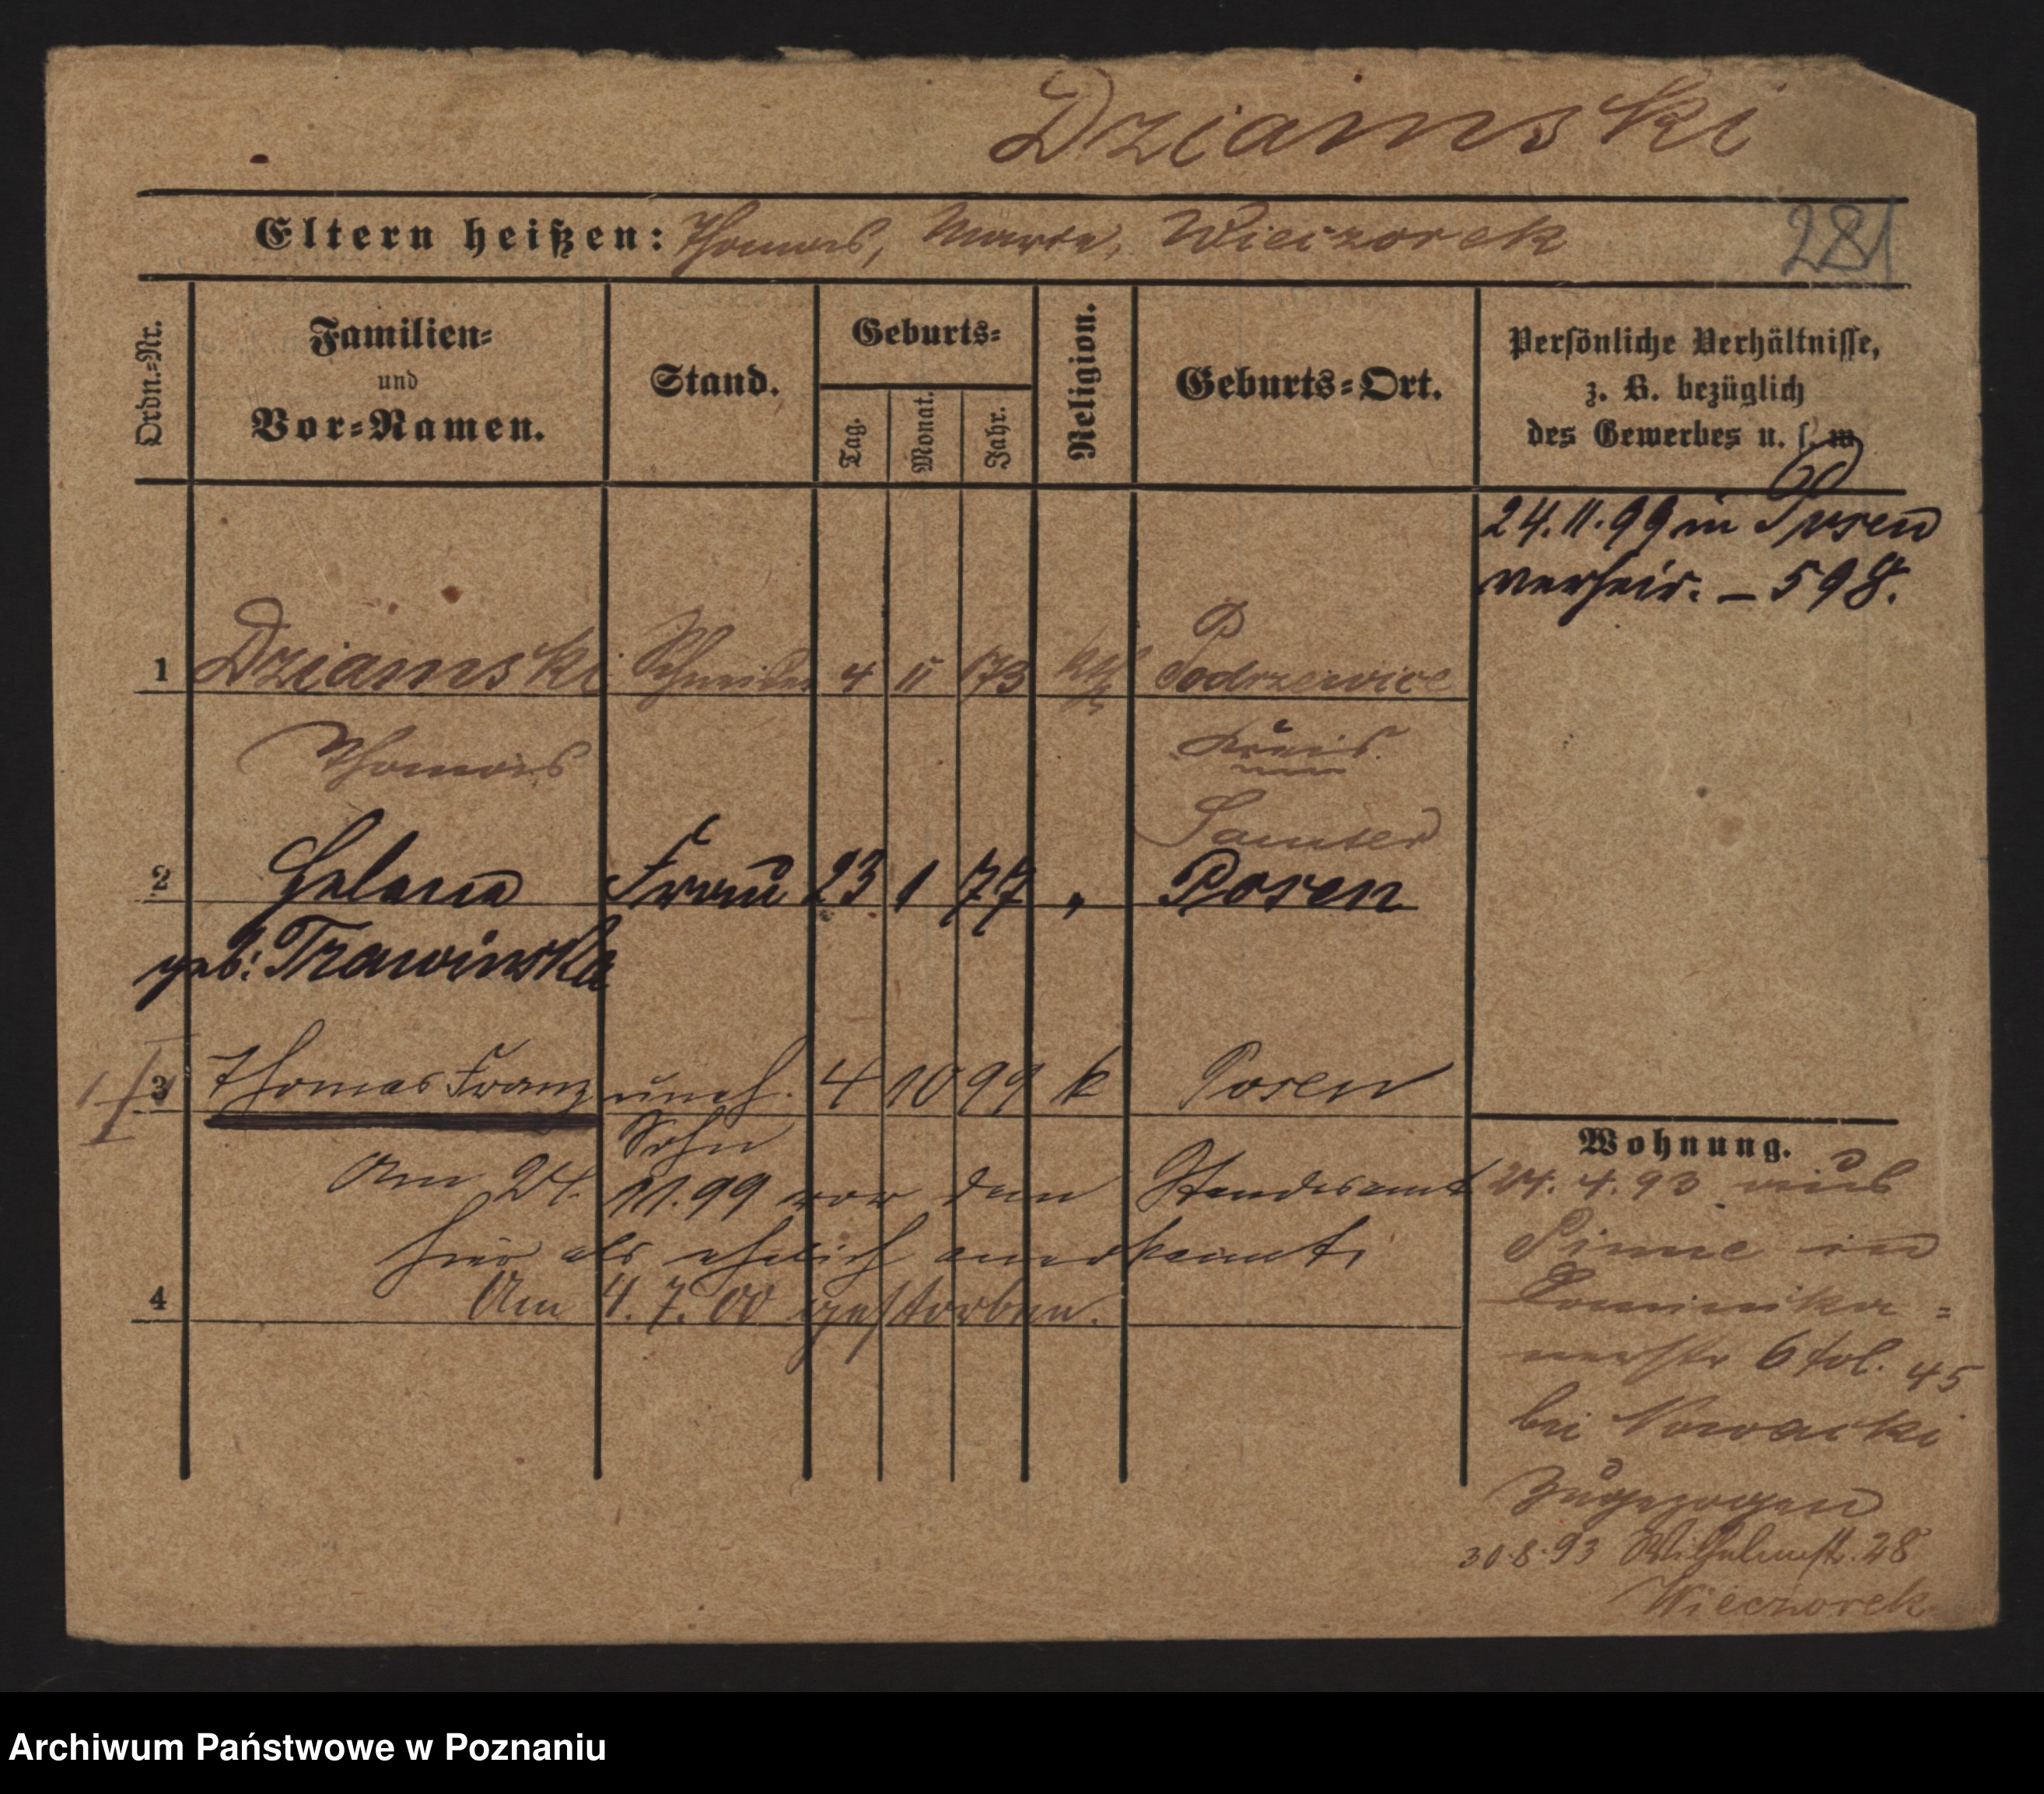 Dziamski
Eltern heißen: Thomas, Maria, Wieczorek
281
Ordn.=Nr.
Familien=
und
Vor=Namen.
Stand.
Geburts=
Tag.
Monat.
Jahr.
Religion.
Geburts=Ort.
Persönliche Verhältnisse,
z. B. bezüglich
des Gewerbes u. s. w.
24.11.99 in Posen
verheir. – 598.
1 Dziamski Schneider 4 11 73 kth Podrzewice
Thomas Kreis
Samter
2 Helena Frau 23 1 77 " Posen
geb: Trawinska
3 Thomas Franz uneh. 4 10 99 k Posen
Sohn
Am 24. 11.99 vor dem Standesamt
hier als ehelich anerkannt,
4 Am 4.7.00 gestorben.
Wohnung.
24.4.93 aus
Pinne in
Dominika=
nerstr 6 fol. 45
bei Nowacki
zugezogen
30.8.93 Wilhelmstr. 28
Wieczorek
Archiwum Państwowe w Poznaniu